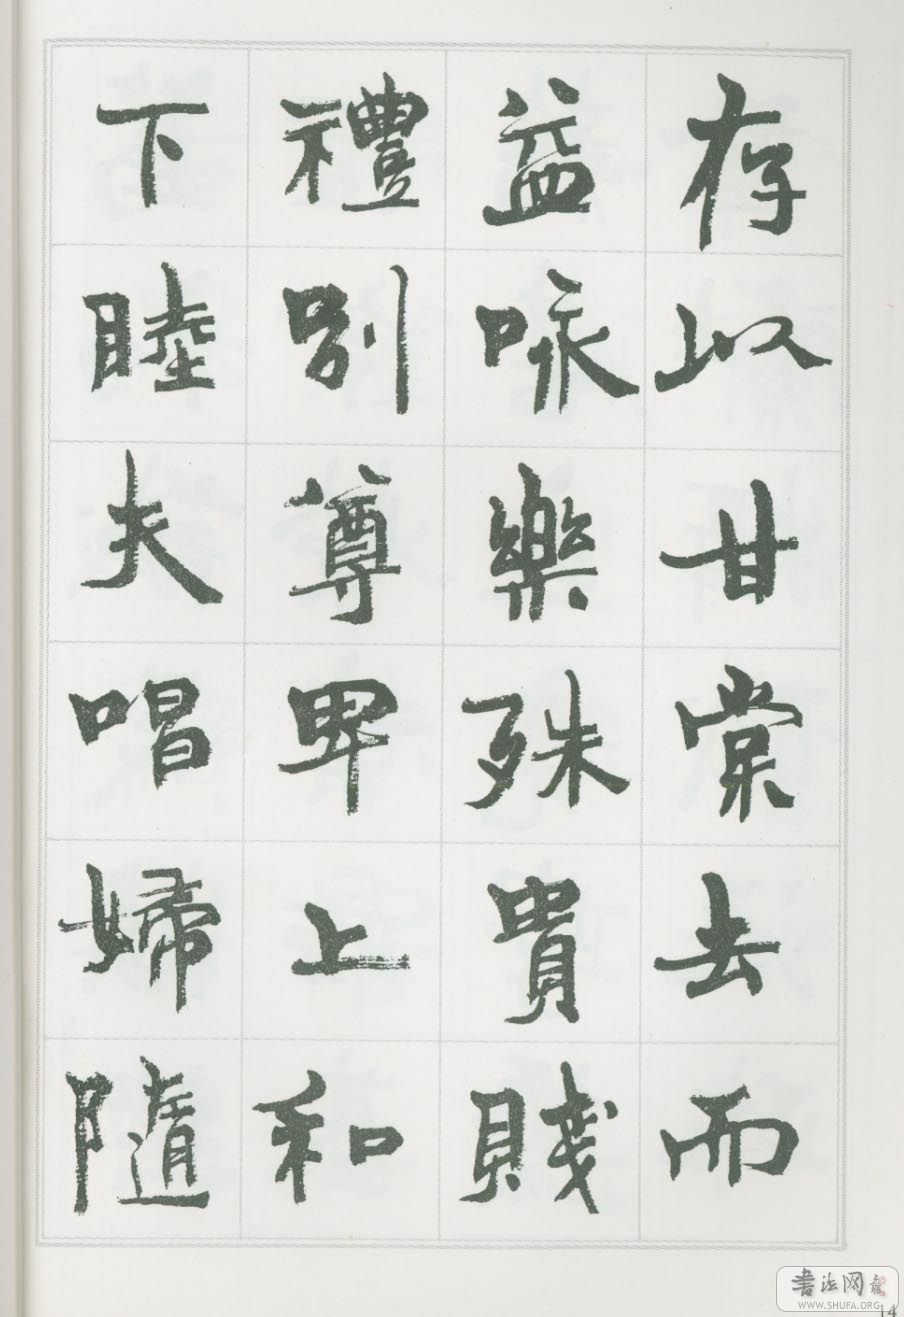 存以甘棠去而
益咏樂殊貴賤
禮别尊卑上和
下睦夫唱婦隨
書法网
WWW.SHUFA.ORG
14